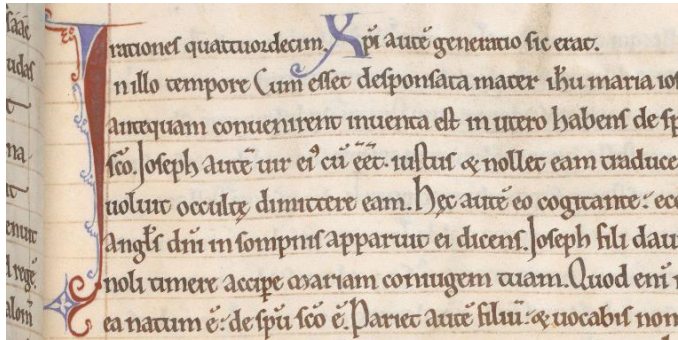 rationes quattuordecim. Xp̄i autē generatio sic erat.
In illo tempore Cum esset desponsata mater ih̄u maria ios
antequam convenirent inventa est in utero habens de sp
sc̄o. Joseph autē vir ei᾽ cū eēt. iustus & nollet eam traduce
voluit occultę dimittere eam. Hęc autē eo cogitante: ecc
Angl̄s dn̄i in sompnis apparuit ei dicens. Joseph fili daui
noli timere accipe mariam coniugem tuam. Quod eni᾽
ea natum ē: de sp̄u sc̄o ē. Pariet autē filiū: & vocabis nom
isāāc
udas
na
enuit
regē
alom̄